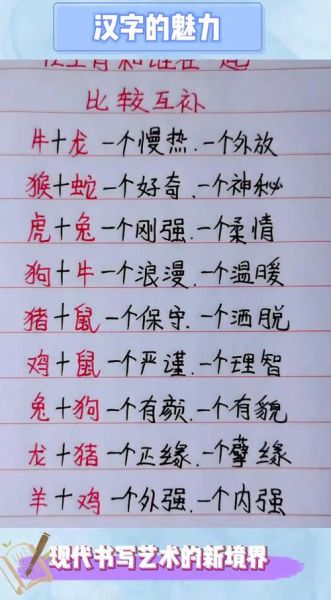 汉字的魅力
比较互补
牛+龙 一个慢热.一个外放
猴+蛇 一个好奇.一个神秘
虎+兔 一个刚强.一个柔情
狗+牛 一个浪漫.一个温暖
猪+鼠 一个保守.一个洒脱
鸡+鼠 一个严谨.一个理智
兔+狗 一个有颜.一个有貌
龙+猪 一个正缘.一个孽缘
羊+鸡 一个外强.一个内强
现代书写艺术的新境界